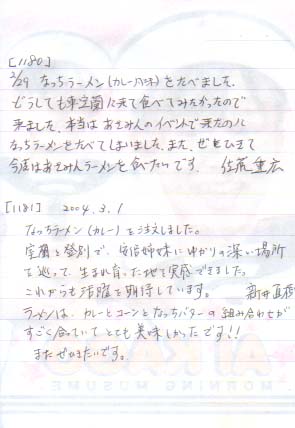 [1180]
2/29 なっちラーメン(カレー味)をたべました。
どうしても東室蘭に来て食べてみたかったので
来ました。本当はあさみんのイベントで来たのに
なっちラーメンをたべてしまいました。また、ぜひきて
今度はあさみんラーメンを食べたいです。 佐藤 重広
[1181] 2004.3.1
なっちラーメン(カレー)を注文しました。
室蘭と登別で、安倍姉妹にゆかりの深い場所
を巡って、生まれ育った地を実感できました。
これからも活躍を期待しています。 新田
ラーメンは、カレーとコーンとなっちバターの組み合わせが
すごく合っていてとても美味しかったです!!
またぜひきたいです。
AI KAGO
MORNING MUSUME